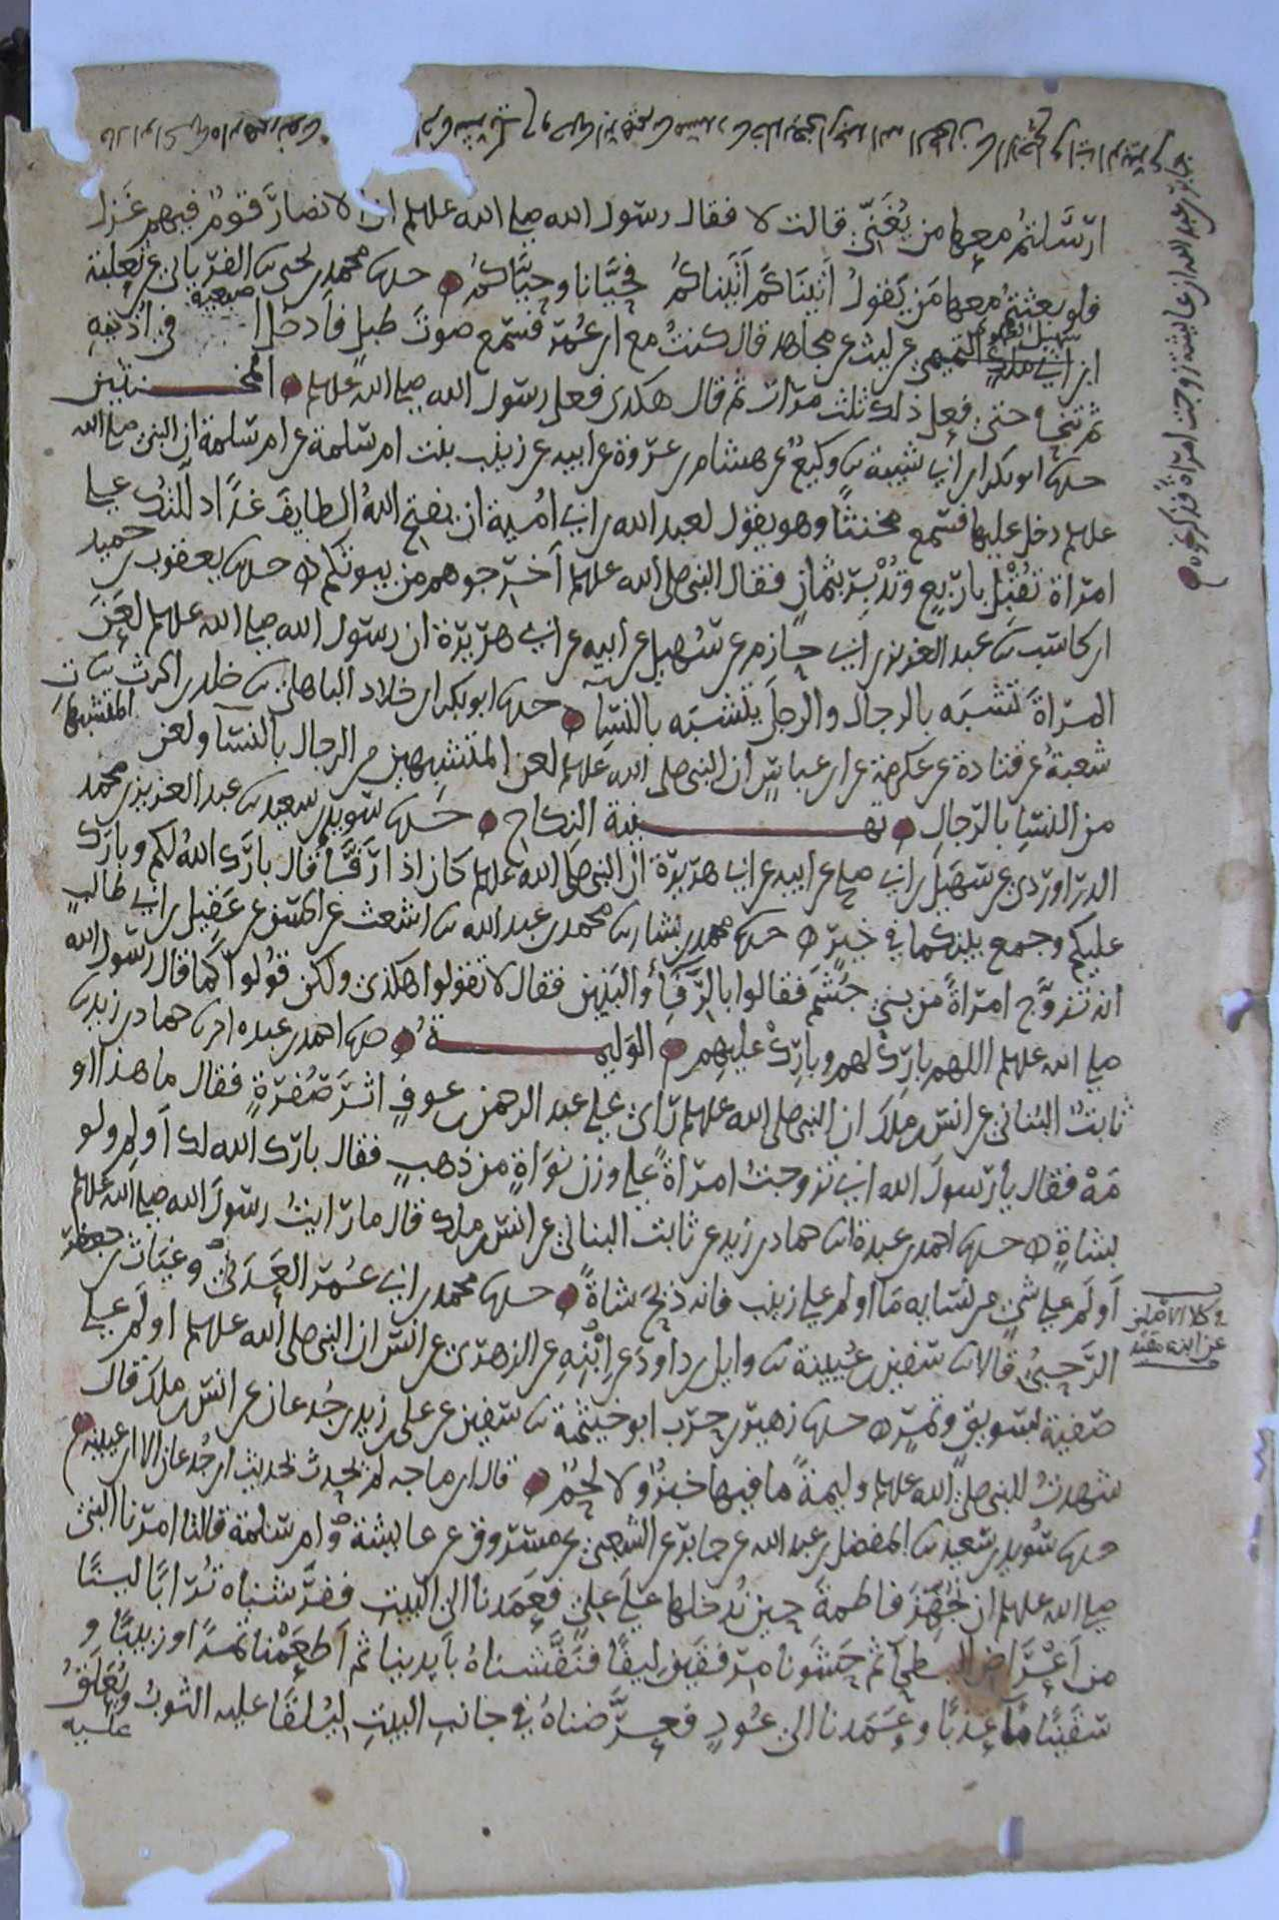 ارسلتم معها من يُغَنّي قالت لا فقال رسول الله صلى الله علىه وسلم ان الانصار قومٌ فيهم غَزَل
فلو بعثتم معها مَن يَقولُ أتَيناكُم أتَيناكُمُ فحيَّانا وحيَّاكُمُ حدثنا محمد بن يحيى ثنا الفريابي عن ثعلبة
ابن ابي ملك التميمي عن ليث عن مجاهد قال كنتُ مع ابن عُمَر فسمع صوتَ طبلٍ فأدخل اصبعيه في اُذنيهِ
ثم تنحا حتى فعل ذلك ثلث مرّات ثم قال هكذى فعل رسول الله صلى الله علىه وسلم المخنثين
حدثنا ابو بكر بن ابي شيبة ثنا وكيعٌ عن هشام بن عروة عن ابيه عن زينب بنت ام سلمة عن ام سلمة ان النبي صلى الله
علىه وسلم دخل عليها فسمع مخنثًا وهو يقول لعبد الله بن ابي اُمية ان يفتح اللهُ الطايفَ غدًا دللتُك على
امرأة تُقبْل باربعٍ وتُدْبر بثمانٍ فقال النبي صلى الله علىه وسلم أخرجوهم من بيوتكم حدثنا يعقوب بن حميد
ابن كاسب ثنا عبد العزيز بن ابي حازم عن سُهيل عن أبيه عن ابي هريرة ان رسول الله صلى الله علىه وسلم لعَنَ
المرأةَ تتشبَه بالرجال والرجلَ يتشبَه بالنسآِ حدثنا ابو بكر بن خلاد الباهلي ثنا خلد بن الحرث ثنا
شعبةُ عن قتادة عن عكرمة عن ابن عباسٍ ان النبي صلى الله علىه وسلم لعن المتشبهين من الرجال بالنسآ ولعن المتشبهات
من النسآِ بالرّجالِ تهنية النكاحِ حدثنا سويد بن سعيد ثنا عبد العزيز بن محمد
الدراوردي عن سهيل بن ابي صالح عن ابيه عن ابي هريرة ان النبي صلى الله علىه وسلم كان اذا رَفَّأ قال بارك اللهُ لكم وبارك
عليكم وجمع بينكما في خيرٍ حدثنا محمد بن بشار ثنا محمد بن عبد الله ثنا اشعث عن الحسن عن عَقيل بن ابي طالبٍ
انه تزوّج امرأةً من بني جُشَمَ فقالوا بالرَّفَأ والبَنين فقال لا تقولوا هكذى ولكن قُولوا كما قال رسول الله
صلى الله علىه وسلم اللهم بارِك لهم وبارِكْ عليهم الوَليمةُ حدثنا احمد بن عبدة ثنا حماد بن زيد ثنا
ثابتُ البُناني عن انس بن ملك ان النبي صلى الله علىه وسلم رأى على عبد الرحمن بن عوفٍ اثرَ صُفرَةٍ فقال ما هذا او
مَهْ فقال يا رسولَ الله اني تزوجتُ امرأةً على وزن نوَاةٍ من ذهبٍ فقال بارك الله لك أولِم ولو
بشاةٍ حدثنا احمد بن عبدة ثنا حماد بن زيد عن ثابت البناني عن انس بن ملك قال ما رايتُ رسولَ الله صلى الله علىه وسلم
أولَم على شيٍ من نسايه ما اولم على زينب فانه ذبَحَ شاةً حدثنا محمد بن ابي عُمَر العَدَنيُّ وغياث بن جعفر
الرَّحبيُّ قالا ثنا سفين بن عُيينة ثنا وايل بن داود عن ابْنِهِ عن الزهري عن انس ان النبي صلى الله علىه وسلم اولَم على
صفية بسويقٍ وتمرٍ حدثنا زهير بن حرب ابو خيثمة ثنا سفين عن علي بن زيد بن جُدعان عن انس بن ملك قال
شهدتُ للنبي صلى الله علىه وسلم وليمةً ما فيها خبزٌ ولا لحمٌ قال ابن ماجه لم يُحدث بحديث ابن جُدعان الا ابن عيينه
حدثنا سُويد بن سَعيد ثنا المفضل بن عبد الله عن جابر عن الشعبي عن مسروق عن عايشة وام سلمة قالتا امرنا النبي
صلى الله علىه وسلم ان نُجهِّزَ فاطمةَ حين نُدخلها على عليٍ فعمَدنا الى البيتِ ففرَشناه تُرابًا ليّنًا
من أعْرَاضِ البطحآِ ثم حَشَونا مرفقَينِ ليفًا فنَفَشناهُ بأيدينا ثم أطعَمْنا تمرًا وزبيبًا و
سقَينا مآءً عذبًا وعَمَدنا الى عُودٍ فعرَّضناهُ في جانبِ البيتِ ليُلقا عليه الثوبُ ويُعَلّقُ
عليه
جابر بن عبد الله ان عايشة زوجت امرأةً فذكر نحوه
في كلا الاصلين
عن ابيه